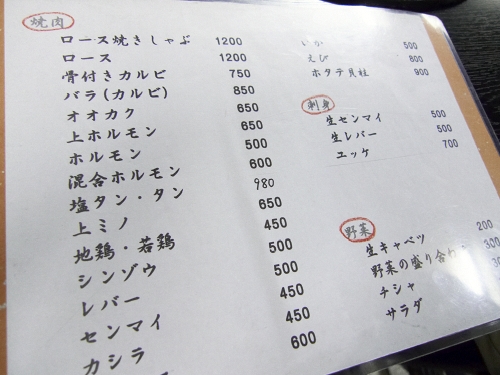 焼肉
ロース焼きしゃぶ 1200
ロース 1200
骨付きカルビ 750
バラ(カルビ) 850
オオカク 650
上ホルモン 650
ホルモン 500
混合ホルモン 600
塩タン・タン 980
上ミノ 650
地鶏・若鶏 450
シンゾウ 500
レバー 500
センマイ 450
カシラ 450
600
いか 500
えび 800
ホタテ貝柱 900
刺身
生センマイ 500
生レバー 500
ユッケ 700
野菜
生キャベツ 200
野菜の盛り合わ 300
チシャ
サラダ